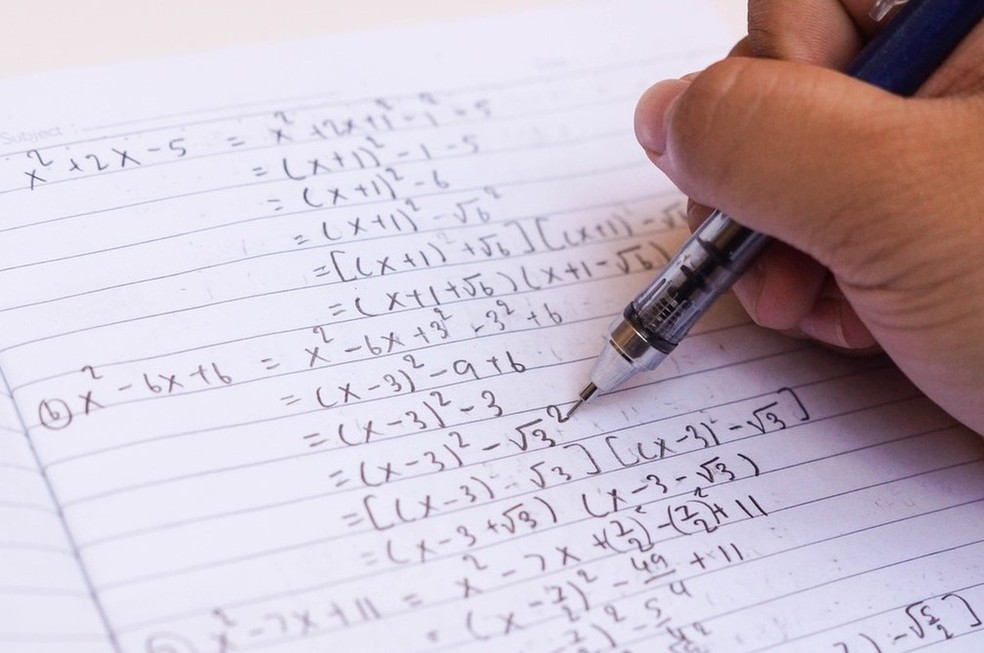 Subject :
x² + 2x - 5 = x² + 2x + 1² - 1² - 5
= (x+1)² - 1 - 5
= (x+1)² - 6
= (x+1)² - √6²
= [(x+1) + √6] [(x+1) - √6
= (x+1+√6) (x+1-√6)
(b) x² - 6x + 6 = x² - 6x + 3² - 3² + 6
= (x-3)² - 9 + 6
= (x-3)² - 3
= (x-3)² - √3²
= [(x-3) - √3] [(x-3) - √3]
= (x-3+√3) (x-3-√3)
x² - 7x + 11 = x² - 7x + (7/2)² - (7/2)² + 11
(x - 7/2)² - 49/4 + 11
) - √5/2]